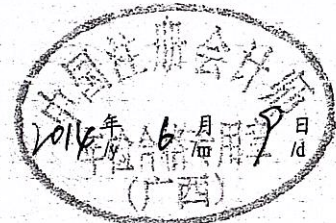 中国注册会计师
2014年 6月 9日
/y /m /d
年检合格专用章
(广西)